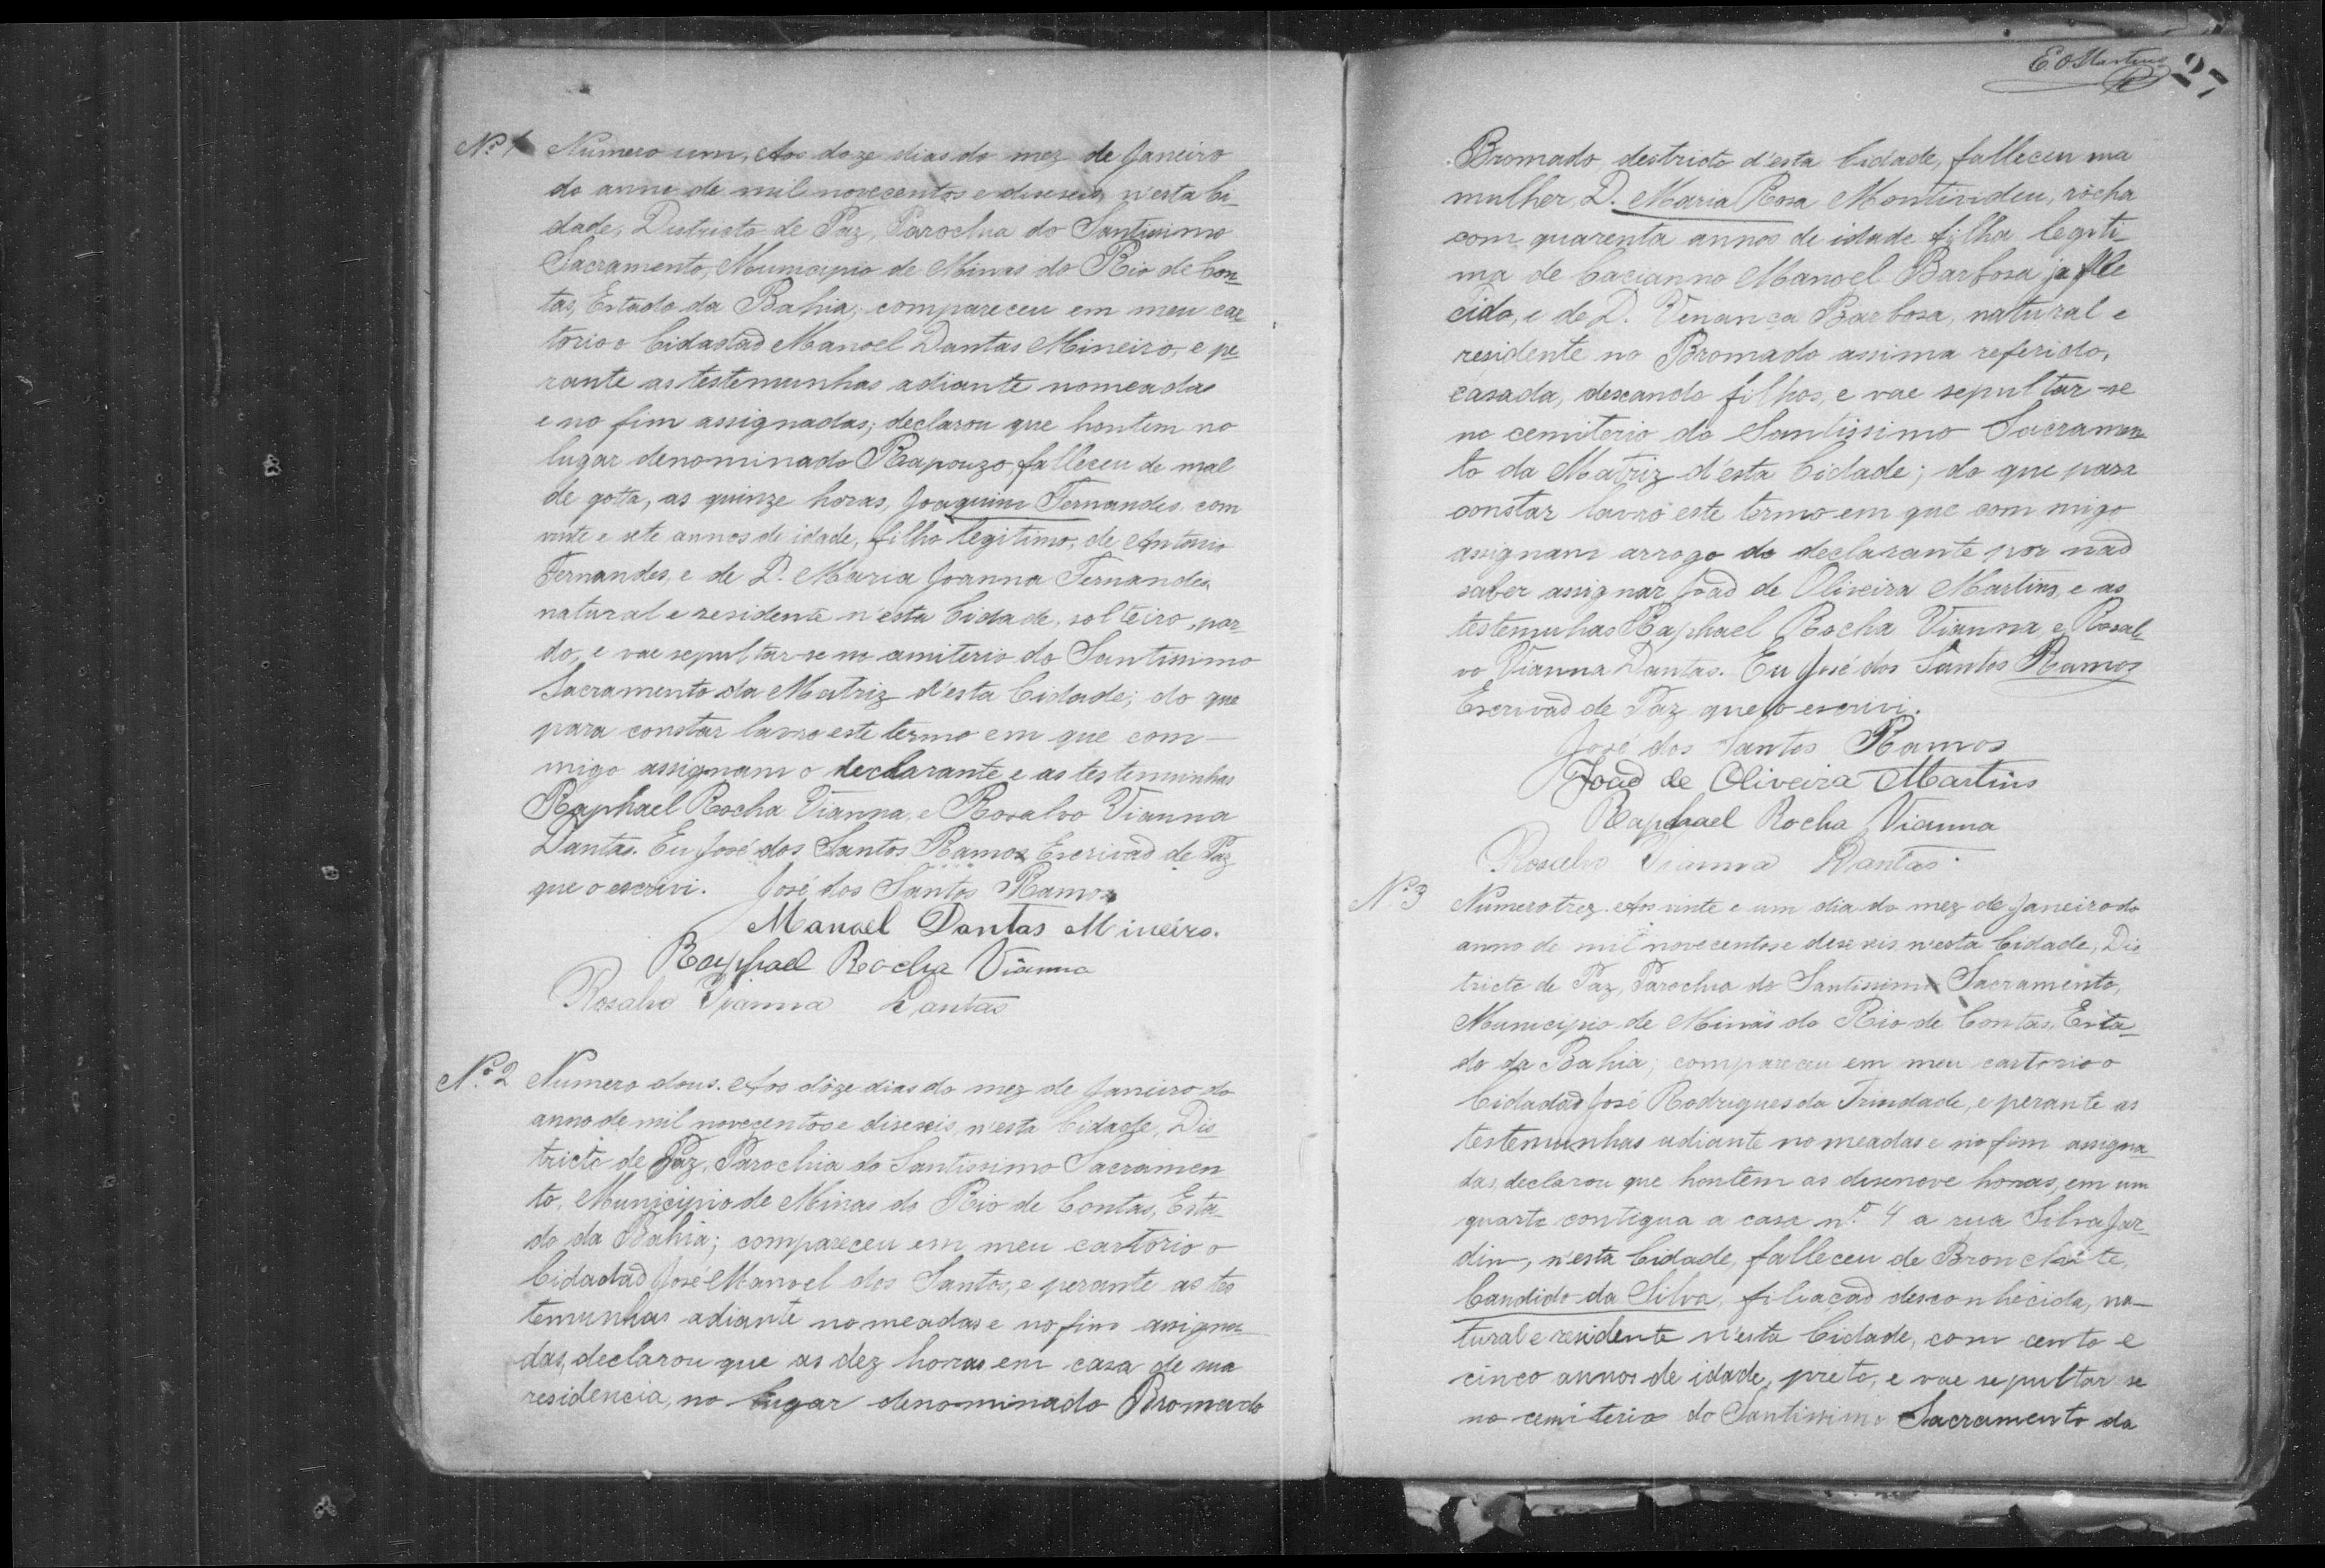 Nº 1 Numero um, Aos doze dias do mez de Janeiro
do anno de mil novecentos e deseseis, n'esta Ci-
dade, Districto de Paz, Parochia do Santissimo
Sacramento, Municipio de Minas do Rio de Con-
tas, Estado da Bahia, compareceu em meu car
torio o Cidadaõ Manoel Dantas Mineiro, e pe-
rante as testemunhas adiante nomeadas
e no fim assignadas; declarou que hontem no
lugar denominado Rapouzo, falleceu de mal
de gotta, as quinze horas, Joaquim Fernandes, com
vinte e sete annos de idade, filho legitimo, de Antonio
Fernandes, e de D. Maria Joanna Fernandes,
natural e residente n'esta Cidade, solteiro, par-
do, e vae sepultar-se no cemiterio do Santissimo
Sacramento da Matriz d'esta Cidade; do que
para constar lavro este termo em que com-
migo assignam o declarante e as testemunhas
Raphael Rocha Vianna, e Rosalvo Vianna
Dantas. Eu José dos Santos Ramos Escrivaõ de Paz
que o escrivi. José dos Santos Ramos
Manoel Dantas Mineiro.
Raphael Rocha Vianna
Rosalvo Vianna Dantas
Nº 2 Numero dous. Aos dóze dias do mez de Janeiro do
anno de mil novecentos e diseseis, n'esta Cidade, Dis
tricto de Paz, Parochia do Santissimo Sacramen
to, Municipio de Minas do Rio de Contas, Esta-
do da Bahia; compareceu em meu cartorio o
Cidadaõ José Manoel dos Santos, e perante as tes
temunhas adiante nomeadas e no fim assigna-
das, declarou que as dez horas em casa de sua
residencia, no lugar denominado Bromado
E. O. Martins
27
Bromado destricto d'esta Cidade, falleceu sua
mulher, D. Maria Rosa Montivideu, rocha
com quarenta annos de idade filha legiti-
ma de Cacianno Manoel Barbosa ja falle
cido, e de D. Venança Barbosa, natural e
residente no Bromado assima referido,
casada, dexando filhos, e vae sepultar-se
no cemiterio do Santissimo Sacramen
to da Matriz d'esta Cidade; do que para
constar lavro este termo em que com migo
assignam arrogo do declarante por naõ
saber assignar Joaõ de Oliveira Martins, e as
testemuhas Raphael Rocha Vianna, e Rosal-
vo Vianna Dantas. Eu José dos Santos Ramos
Escrivaõ de Paz que o escrivi.
José dos Santos Ramos
Joaõ de Oliveira Martins
Raphael Rocha Vianna
Rosalvo Vianna Dantas.
Nº 3 Numero trez. Aos vinte e um dia do mez de Janeiro do
anno de mil novecentos e deseseis n'esta Cidade, Dis
tricto de Paz, Parochia do Santissimo Sacramento,
Municipio de Minas do Rio de Contas, Esta-
do da Bahia; compareceu em meu cartorio o
Cidadaõ José Rodrigues da Trindade, e perante as
testemunhas adiante nomeadas e no fim assigna
das, declarou que hontem as disenove horas, em um
quarto contigua a casa nº 4 a rua Silva Jar-
dim, n'esta Cidade, falleceu de Bronchite,
Candido da Silva, filiaçaõ desconhecida, na-
tural e residente n'esta Cidade, com cento e
cinco annos de idade, preto, e vae sepultar se
no cemiterio do Santissimo Sacramento da